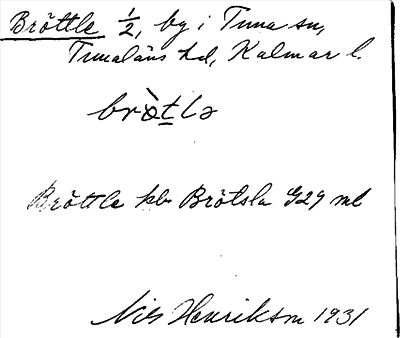 Bröttle ½, by i Tuna sn,
Tunaläns hd, Kalmar l.
brö̀t̠lə
Bröttle kb Brötsla G29 ml
Nils Henrikson 1931